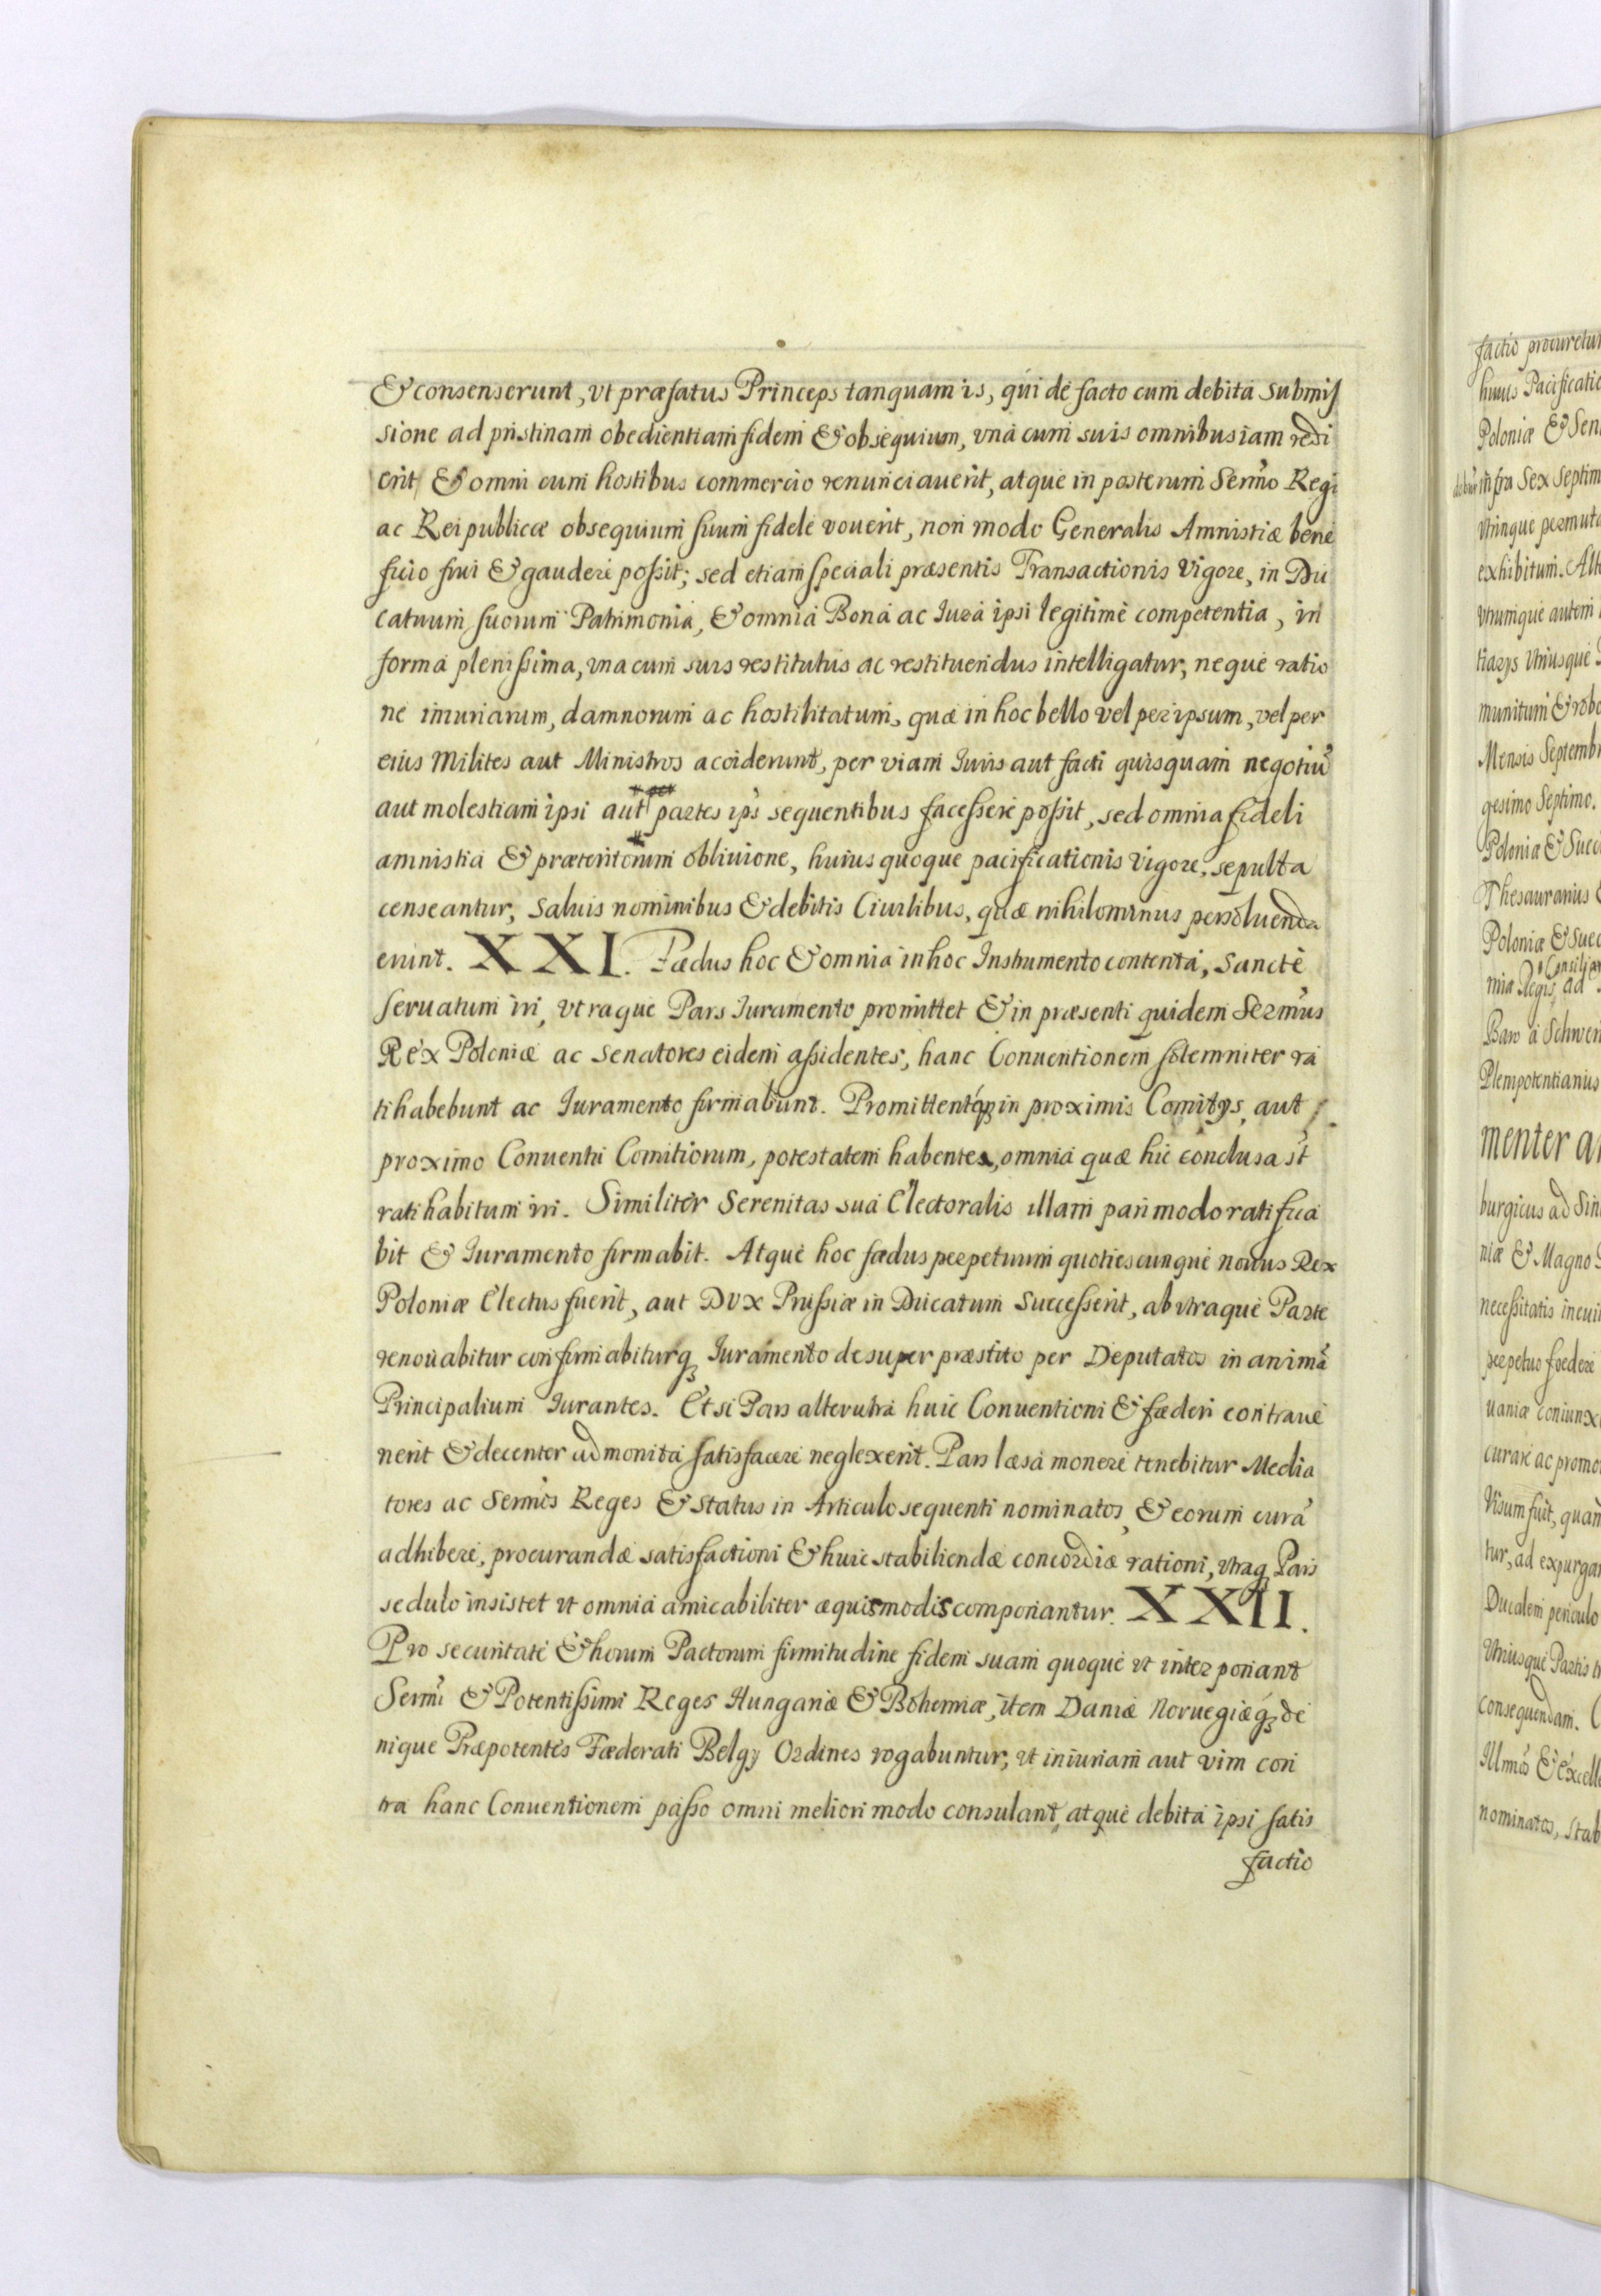 & consenserunt, vt præfatus Princeps tanquam is, qui de facto cum debita submis
sione ad pristinam obedientiam fidem & obsequium, vna cum suis omnibus iam redi
erit & omni cum hostibus commercio renunciauerit, atque in posterum Sermo Regi
ac Reipublicæ obsequium suum fidele vouerit, non modo Generalis Amnistiæ bene
ficio frui & gaudere possit; sed etiam speciali præsentis Transactionis vigore, in Du
catuum suorum Patrimonia, & omnia Bona ac Iura ipsi legitime competentia, in
forma plenissima, vna cum suis restitutus ac restituendus intelligatur, neque ratio
ne iniuriarum, damnorum ac hostilitatum, quæ in hoc bello vel per ipsum, vel per
eius Milites aut Ministros acciderunt, per viam Iuris aut facti quisquam negotiũ
aut molestiam ipsi aut partes ips sequentibus facessere possit, sed omnia fideli
amnistia & præteritorum obliuione, huius quoque pacificationis vigore, sepulta
censeantur, saluis nominibus & debitis Ciuilibus, quæ nihilominus persoluenda
erunt. XXI. Fædus hoc & omnia in hoc Instrumento contenta, sancte
seruatum iri, vtraque Pars Iuramento promittet & in præsenti quidem Sermus
Rex Poloniæ ac Senatores eidem assidentes, hanc Conuentionem solemniter ra
tihabebunt ac Iuramento firmabunt. Promittentq; in proximis Comitys, aut
proximo Conuentu Comitiorum, potestatem habentes, omnia quæ hic conclusa st
ratihabitum iri. Similiter Serenitas sua Electoralis illam pari modo ratifica
bit & Iuramento firmabit. Atque hoc fædus perpetuum quotiescunque nouus Rex
Poloniæ Electus fuerit, aut Dux Prussiæ in Ducatum successerit, ab vtraque Parte
renouabitur confirmabiturq; Iuramento desuper præstito per Deputatos in animã
Principalium Iurantes. Et si Pars alterutra huic Conuentioni & fæderi contraue
nerit & decenter admonita satisfacere neglexerit. Pars læsa monere tenebitur Media
tores ac Sermos Reges & Status in Articulo sequenti nominatos, & eorum curã
adhibere, procurandæ satisfactioni & huic stabiliendæ concordiæ rationi, vtraq; Pars
sedulo insistet vt omnia amicabiliter æquis modis componantur. XXII.
Pro securitate & horum Pactorum firmitudine fidem suam quoque vt interponant
Sermi & Potentissimi Reges Hungariæ & Bohemiæ, item Daniæ Noruegiæq; de
nique Præpotentes Fæderati Belgy Ordines rogabuntur, vt iniuriam aut vim con
tra hanc Conuentionem passo omni meliori modo consulant, atque debita ipsi satis
factio
factio procuretur
huius Pacificatio
Poloniæ & Sen
infra Sex Septim
vtrinque permuta
exhibitum. Alt
vnumque autem
tiarys Vtriusque
munitum & robo
Mensis Septemb
gesimo Septimo.
Poloniæ & Suec
Thesaurarius &
Poloniæ & Suec
Consiliar
mia Regis, ad
Baro a Schwerin
Plenipotentiarius
menter a
burgicus ad Sin
niæ & Magno
necessitatis ineui
perpetuo foedere
uaniæ coniunx
curare ac promo
Visum fuit, quam
tur, ad expurga
Ducalem periculo
Vtriusque Partis
consequendam. C
Illmos & Excell
nominatos, stab